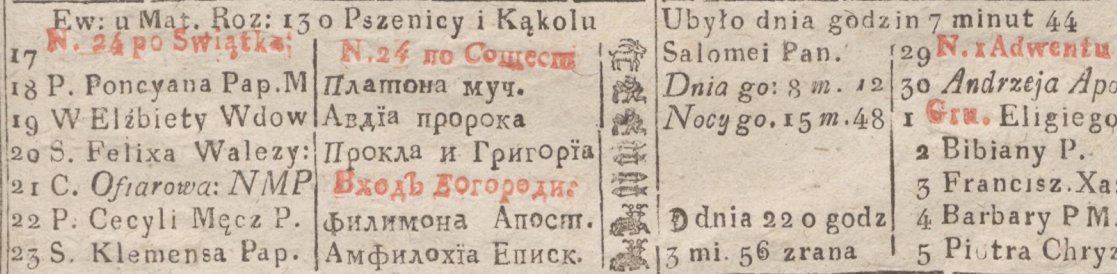 Ew: u Mat. Roz: 13 o Pszenicy i Kąkolu Ubyło dnia godzin 7 minut 44
17 N. 24 po Swiątka: N.24 по Сошест Salomei Pan. 29 N. 1 Adwentu
18 P. Poncyana Pap.M Платона муч. Dnia go: 8 m. 12 30 Andrzeja Apo
19 W Elżbiety Wdow Авдїа пророка Nocy go. 15 m. 48 1 Gru. Eligiego
20 S. Felixa Walezy: Прокла и Григорїа 2 Bibiany P.
21 C. Ofiarowa: NMP Входъ Богородиц 3 Francisz. Xa
22 P. Cecyli Męcz P. филимона Апост. D dnia 22 o godz 4 Barbary P M
23 S. Klemensa Pap. Амфилохїа Еписк. 3 mi. 56 zrana 5 Piotra Chryz